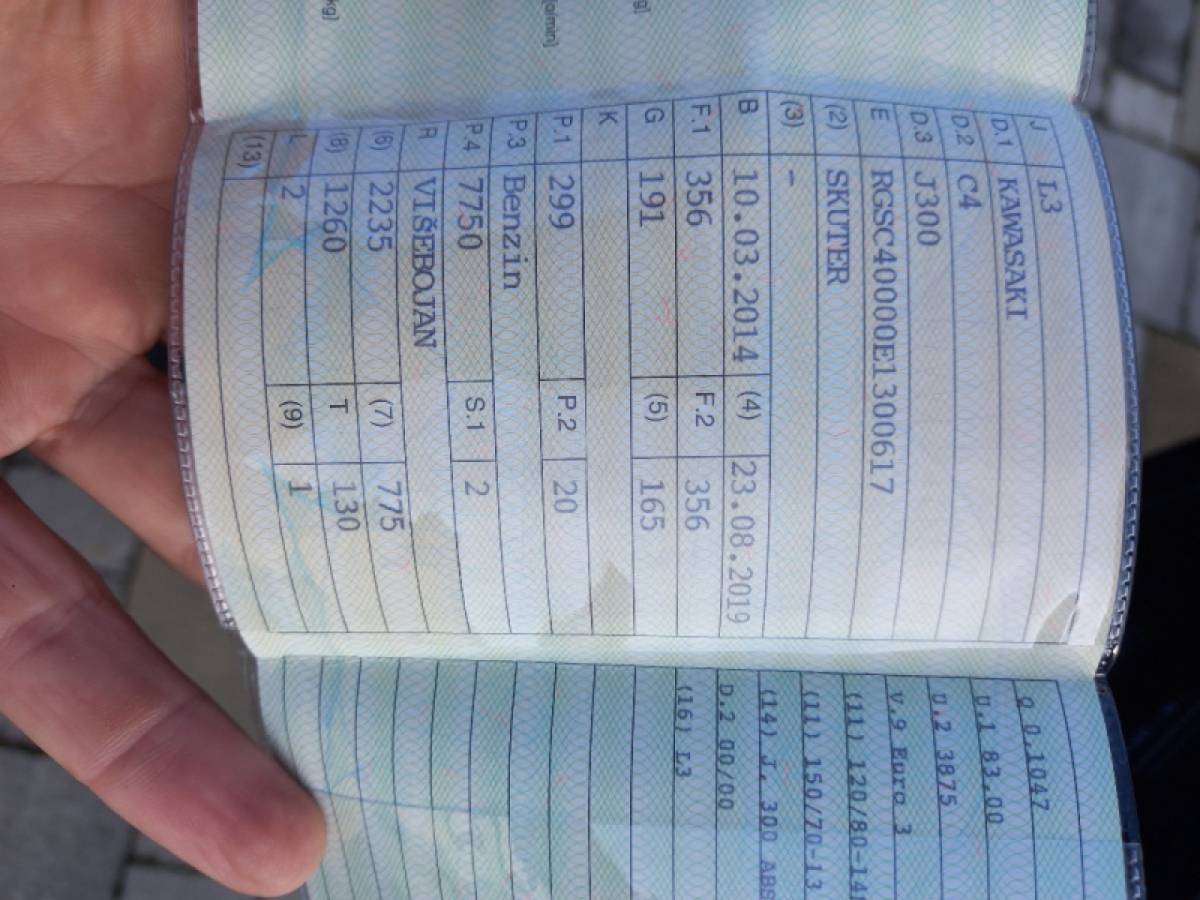 J L3
D.1 KAWASAKI
D.2 C4
D.3 J300
E RGSC40000E1300617
(2) SKUTER
(3) -
B 10.03.2014 (4) 23.08.2019
F.1 356 F.2 356
G 191 (5) 165
K
P.1 299 P.2 20
P.3 Benzin
P.4 7750 S.1 2
R VIŠEBOJAN
(6) 2235 (7) 775
(8) 1260 T 130
L 2 (9) 1
(13)
g]
[o/min]
kg]
Q 0,1047
U.1 83,00
U.2 3875
V.9 Euro 3
(11) 120/80-14
(11) 150/70-13
(14) J, 300 ABS
D.2 00/00
(16) L3